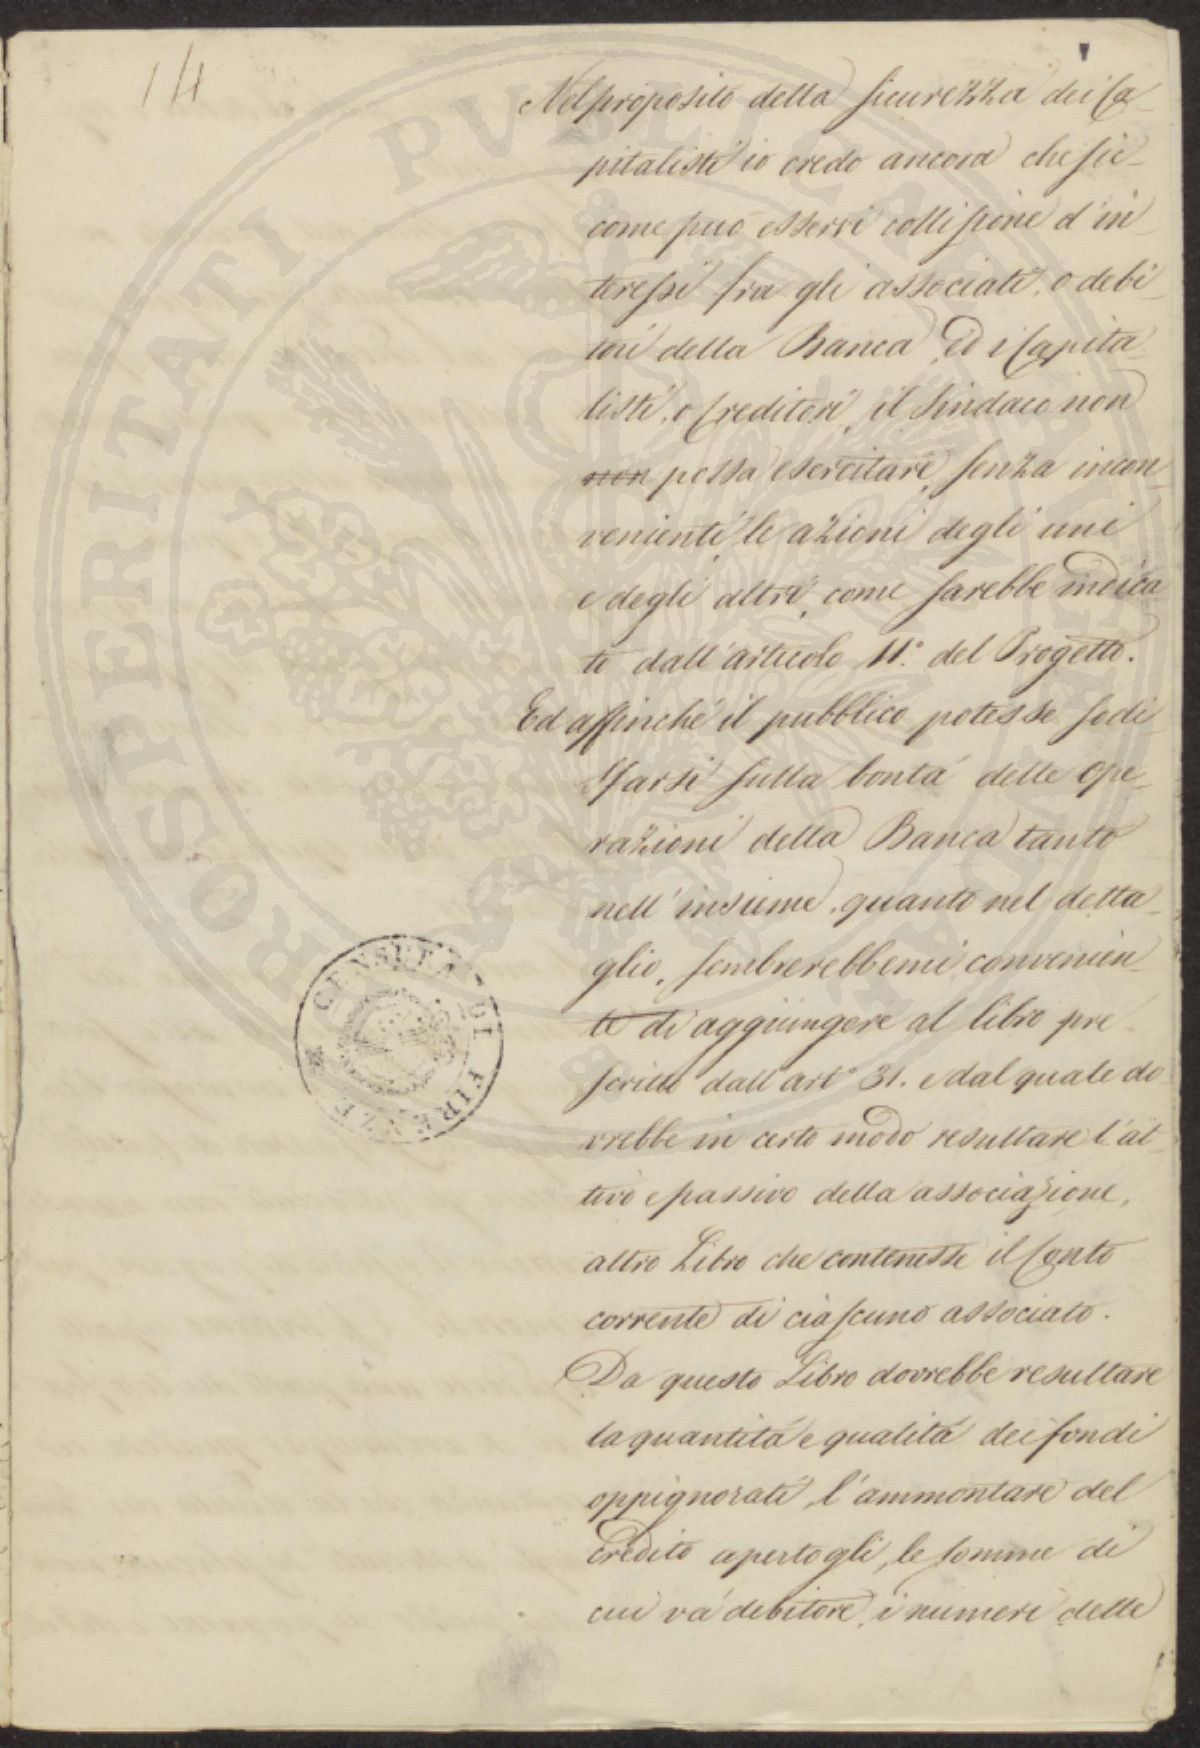 14
Nel proposito della sicurezza dei Ca-
pitalisti io credo ancora che sic-
come può esservi collisione d'in-
teressi fra gli associati, o debi-
tori della Banca, ed i Capita-
listi, o Creditori, il Sindaco non
non possa esercitare, senza incon-
venienti, le azioni degli uni
e degli altri, come sarebbe indica-
to dall'articolo 11.° del Progetto.
Ed affinché il pubblico potesse sodi-
sfarsi sulla bontà delle ope-
razioni della Banca tanto
nell'insieme, quanto nel detta-
glio, sembrerebbemi convenien-
te di aggiungere al libro pre
scritto dall'art.° 31. e dal quale do
vrebbe in certo modo resultare l'at-
tivo e passivo della associazione,
altro Libro che contenesse il Conto
corrente di ciascuno associato.
Da questo Libro dovrebbe resultare
la quantità e qualità dei fondi
oppignorati, l'ammontare del
Credito apertogli, le somme di
cui và debitore, i numeri delle
CENSURA DI FIRENZE
PROSPERITATI PUBLICAE